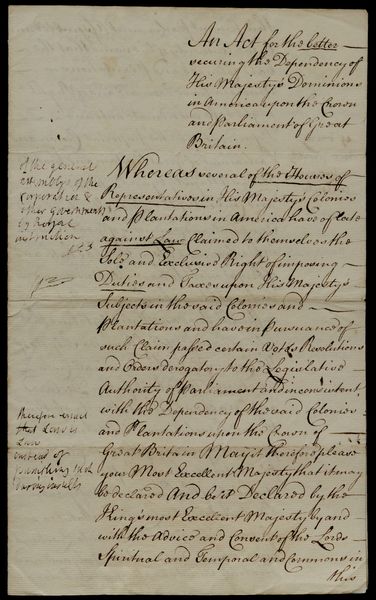 An Act for the better
securing the Dependency of
His Majesty's Dominions
in America upon the Crown
and Parliament of Great
Britain.
Whereas several of the Houses of
Representatives in His Majesty's Colonies
and Plantations in America have of late
against Law Claimed to themselves the
Sole and Exclusive Right of imposing
Duties and Taxes upon His Majesty's
Subjects in the said Colonies and
Plantations and have in Pursuance of
such Claim passed certain Votes Resolutions
and Orders derogatory to the Legislative
Authority of Parliament and inconsistent
with the Dependency of the said Colonies
and Plantations upon the Crown of
Great Britain May it therefore please
your Most Excellent Majesty that it may
be declared And be it Declared by the
King's most Excellent Majesty by and
with the Advice and Consent of the Lords
Spiritual and Temporal and Commons in
this
of the general
assemblys of the
&
other Governments
by Royal
that
Law
instead of